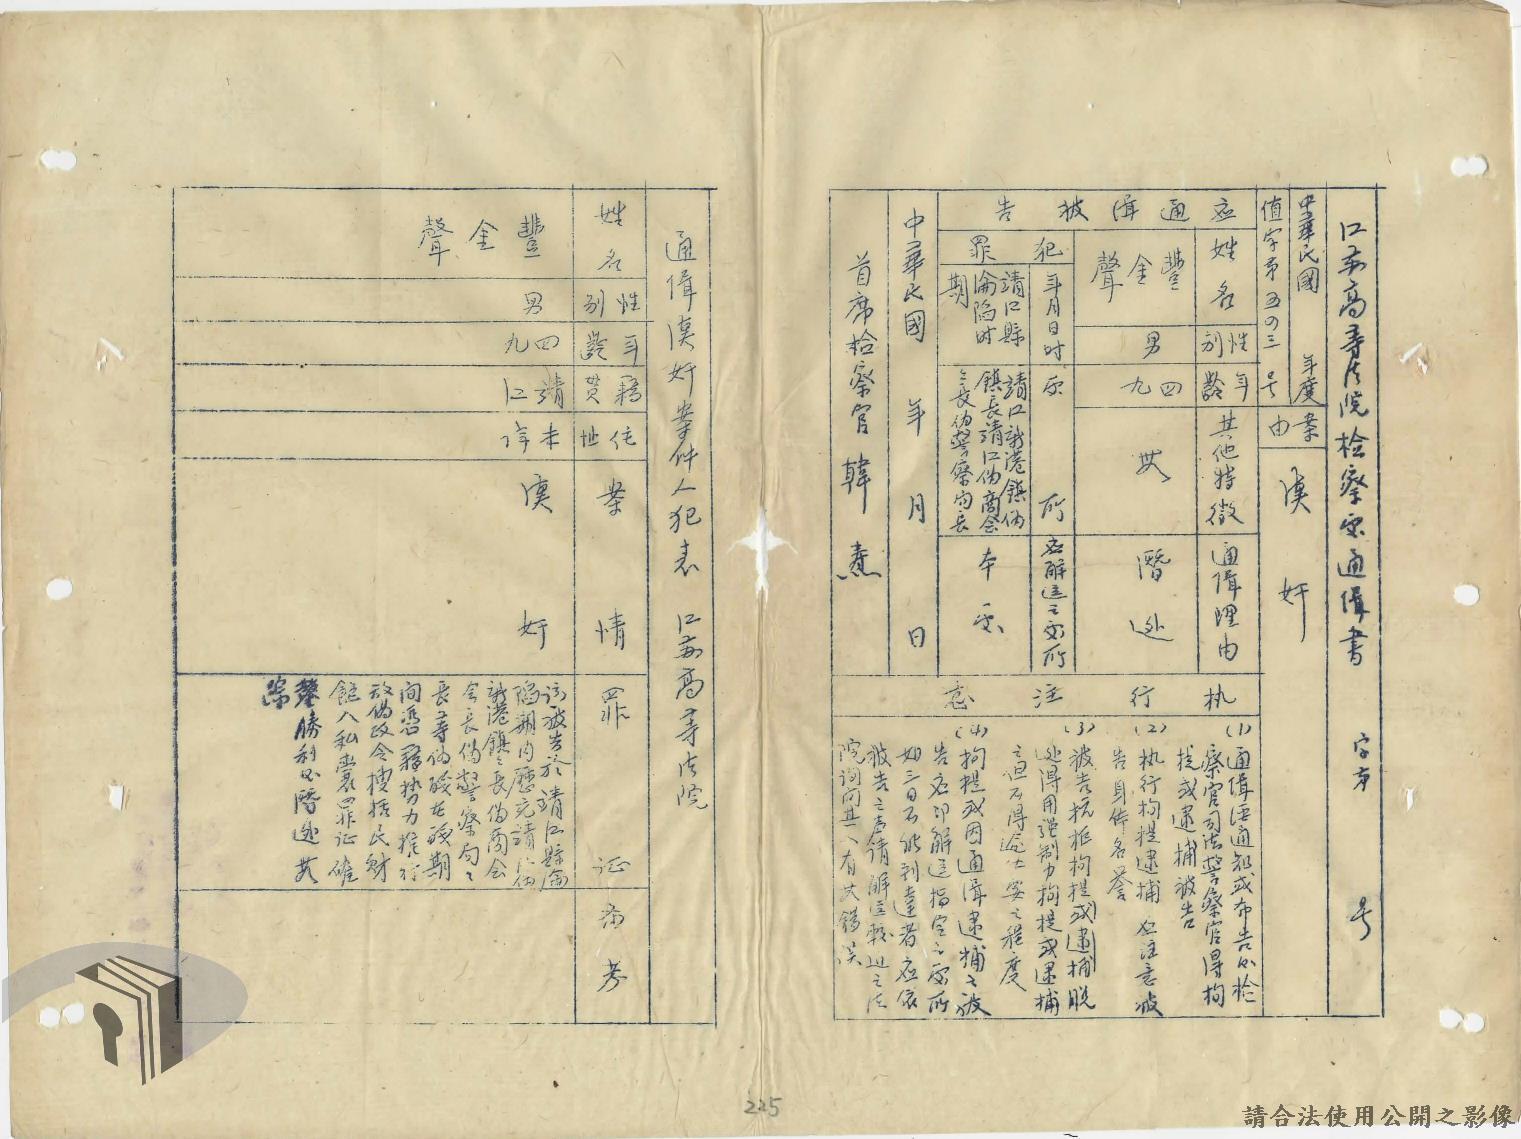 江蘇高等法院檢察處通緝書 字第 号
中華民國 年度
偵字第五〇三号
案由
漢奸
应通緝被告
姓名
性别
年齡
其他特徵
通緝理由
豐金聲
男
四九
潛逃
犯罪
年月日时
处所
应解送之处所
靖江縣
淪陷时
期
靖江新港鎮偽
鎮長靖江偽商会
会長偽警察局長
本处
执行注意
(1)通緝經通知或布告後檢
察官司法警察官得拘
提或逮捕被告
(2)执行拘提逮捕应注意被
告身体名譽
(3)被告抗拒拘提或逮捕脱
逃得用强制力拘提或逮捕
之但不得逾必要之程度
(4)拘提或因通緝逮捕之被
告应即解送指定之处所
如三日不能到達者应依
被告之声請解送較近之法
院詢问其人有无錯误
中華民國 年 月 日
首席檢察官 韓燾
通緝漢奸案件人犯表 江蘇高等法院
姓名
性别
年齡
籍貫
住址
案情
罪证
备考
豐金聲
男
四九
靖江
未详
漢奸
該被告於靖江縣淪
陷期内歷充靖江偽
新港鎮鎮長偽商会
会長偽警察局局
長等偽職在職期
间憑藉勢力推行
敌偽政令搜括民財
飽入私囊罪证確
鑿勝利後潛逃无
踪
225
請合法使用公開之影像